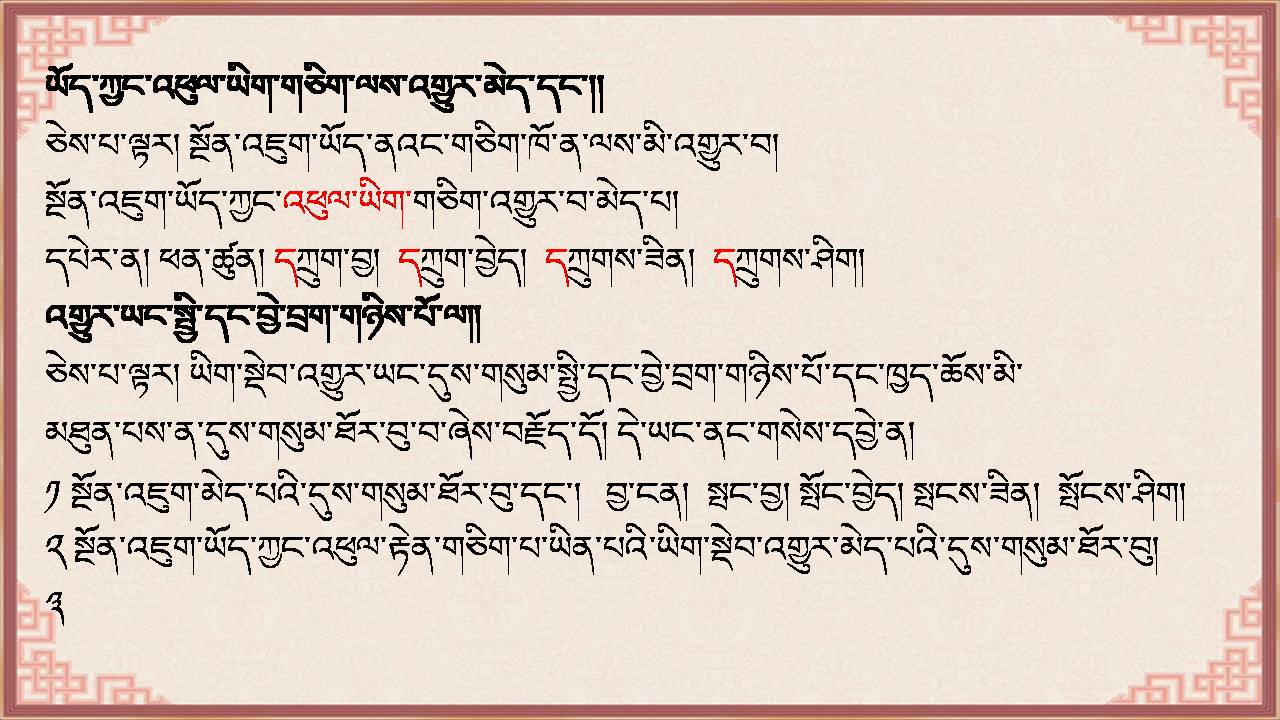 ཡོད་ཀྱང་འཕུལ་ཡིག་གཅིག་ལས་འགྱུར་མེད་དང་༎
ཅེས་པ་ལྟར། སྔོན་འཇུག་ཡོད་ནའང་གཅིག་ཁོ་ན་ལས་མི་འགྱུར་བ།
སྔོན་འཇུག་ཡོད་ཀྱང་འཕུལ་ཡིག་གཅིག་འགྱུར་བ་མེད་པ།
དཔེར་ན། ཕན་ཚུན། དཀྲུག་བྱ། དཀྲུག་བྱེད། དཀྲུགས་ཟིན། དཀྲུགས་ཤིག།
འགྱུར་ཡང་སྤྱི་དང་བྱེ་བྲག་གཉིས་པོ་ལ།།
ཅེས་པ་ལྟར། ཡིག་སྡེབ་འགྱུར་ཡང་དུས་གསུམ་སྤྱི་དང་བྱེ་བྲག་གཉིས་པོ་དང་ཁྱད་ཆོས་མི་
མཐུན་པས་ན་དུས་གསུམ་ཐོར་བུ་བ་ཞེས་བརྗོད་དོ། དེ་ཡང་ནང་གསེས་དབྱེ་ན།
༡ སྔོན་འཇུག་མེད་པའི་དུས་གསུམ་ཐོར་བུ་དང་། བྱ་ངན། སྤང་བྱ། སྤོང་བྱེད། སྤངས་ཟིན། སྤོངས་ཤིག།
༢ སྔོན་འཇུག་ཡོད་ཀྱང་འཕུལ་རྟེན་གཅིག་པ་ཡིན་པའི་ཡིག་སྡེབ་འགྱུར་མེད་པའི་དུས་གསུམ་ཐོར་བུ།
༣